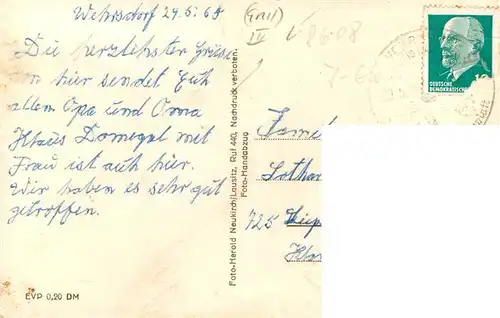 Wehrsdorf 29.5.68
Die herzlichsten Grüße
von hier sendet Euch
allen Opa und Oma
Klaus Domegal mit
Frau ist auch hier.
Wir haben es sehr gut
getroffen.
EVP 0,20 DM
Foto-Herold Neukirch/Lausitz, Ruf 440, Nachdruck verboten.
Foto-Handabzug
Famil
Lothar
725
DEUTSCHE
DEMOKRATISCHE
10